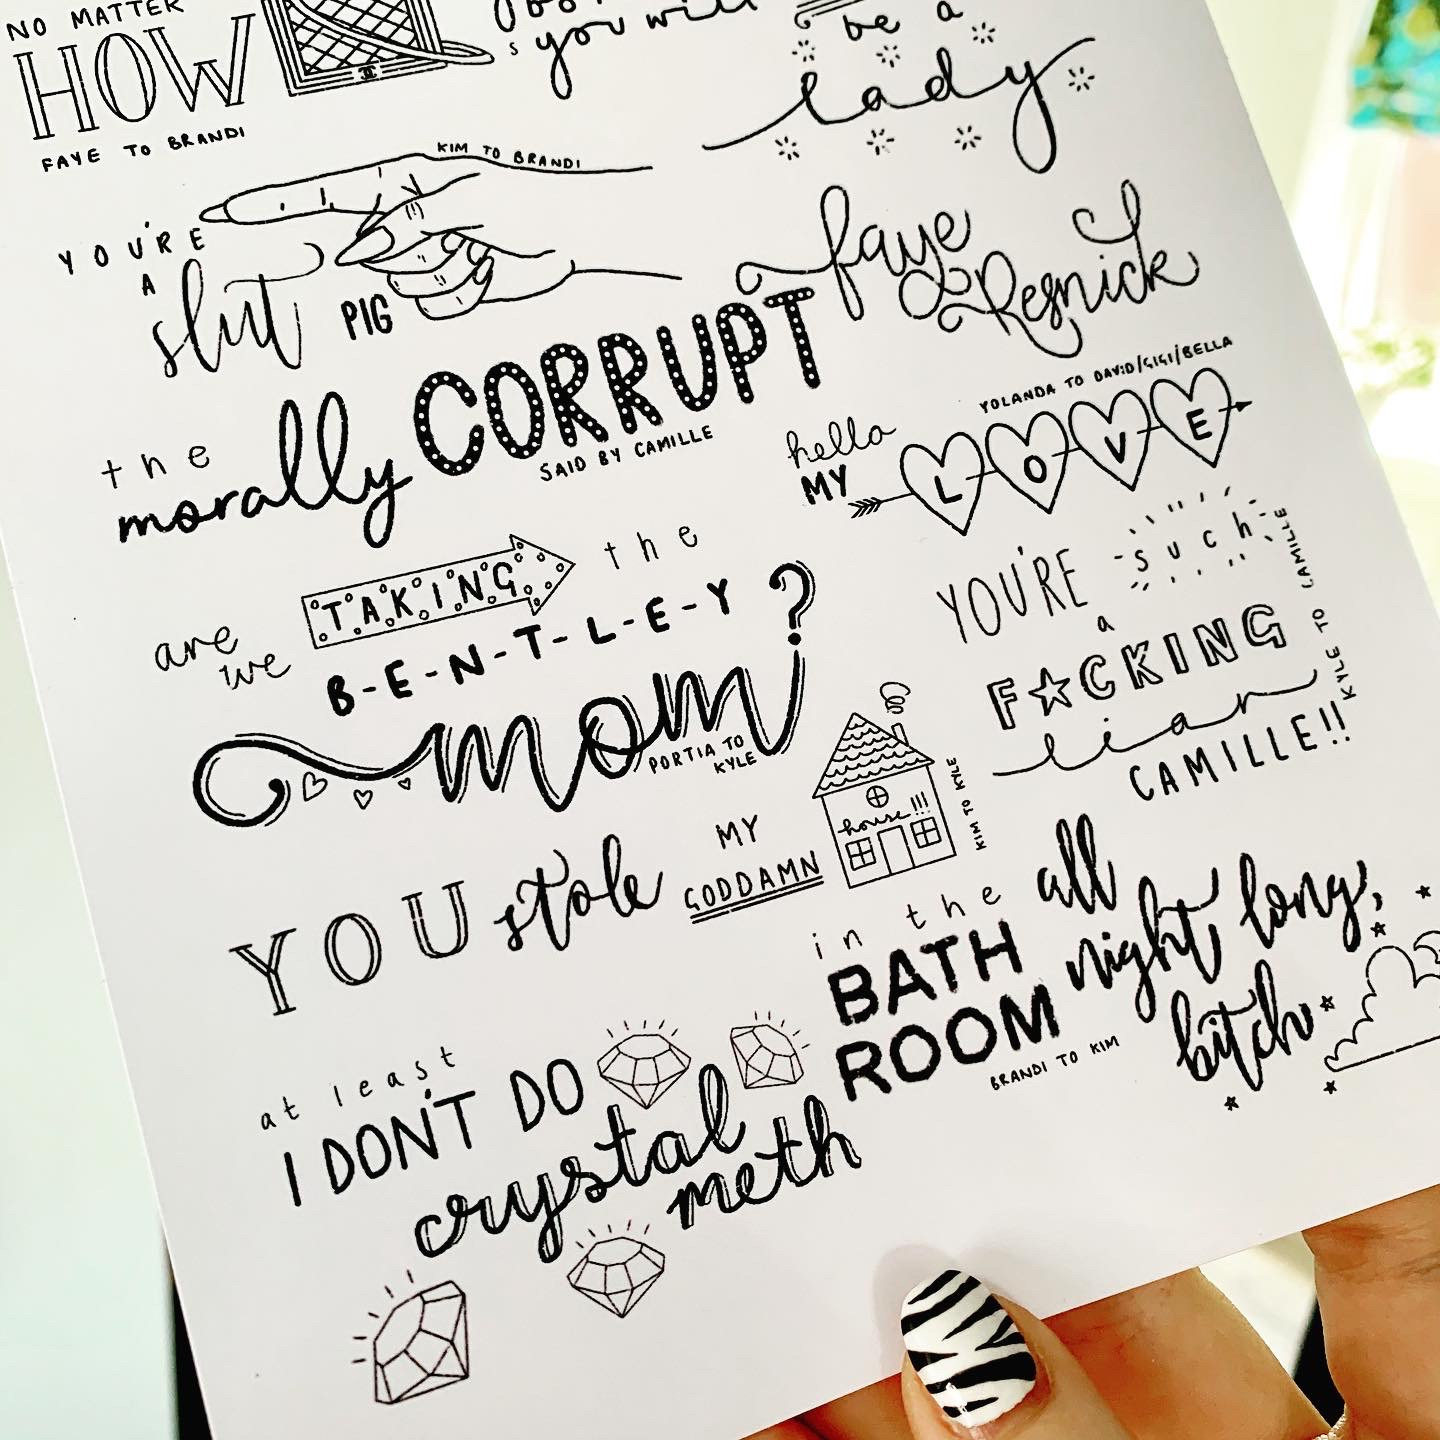 NO MATTER
HOW
FAYE TO BRANDI
s you will
be a
lady
KIM TO BRANDI
YOU'RE
A
slut PIG
faye
Resnick
the
morally CORRUPT
SAID BY CAMILLE
YOLANDA TO DAVID/GIGI/BELLA
hello
MY LOVE
are we TAKING the
B-E-N-T-L-E-Y
mom?
PORTIA TO
KYLE
YOU'RE such
a
F☆CKING
liar
CAMILLE!!
KYLE TO CAMILLE
YOU stole MY
GODDAMN
house!!!
KIM TO KYLE
in the
BATH
ROOM
all
night long,
bitch
BRANDI TO KIM
at least
I DON'T DO
crystal
meth